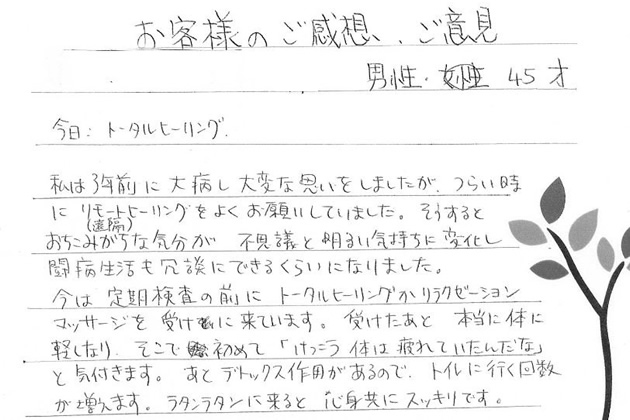 お客様のご感想、ご意見
男性・女性 45才
今日: トータルヒーリング.
私は3年前に大病し大変な思いをしましたが、つらい時
に リモートヒーリングをよくお願いしていました。そうすると
(遠隔)
おちこみがちな気分が 不思議と明るい気持ちに変化し
闘病生活も冗談にできるくらいになりました。
今は 定期検査の前に トータルヒーリングかリラクゼーション
マッサージを 受けに来ています。 受けたあと 本当に体に
軽しなり、そこで 初めて 「けっこう 体は疲れていたんだな」
と 気付きます。 あと デトックス作用があるので、トイレに行く回数
が増えます。ラタンラタンに来ると 心身共に スッキリです。